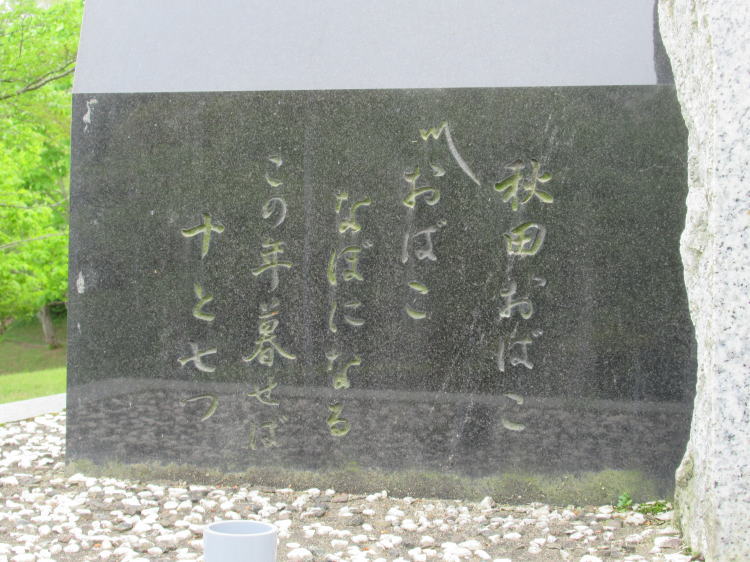 秋田おばこ
〽おばこ
なぼになる
この年暮せば
十と七つ